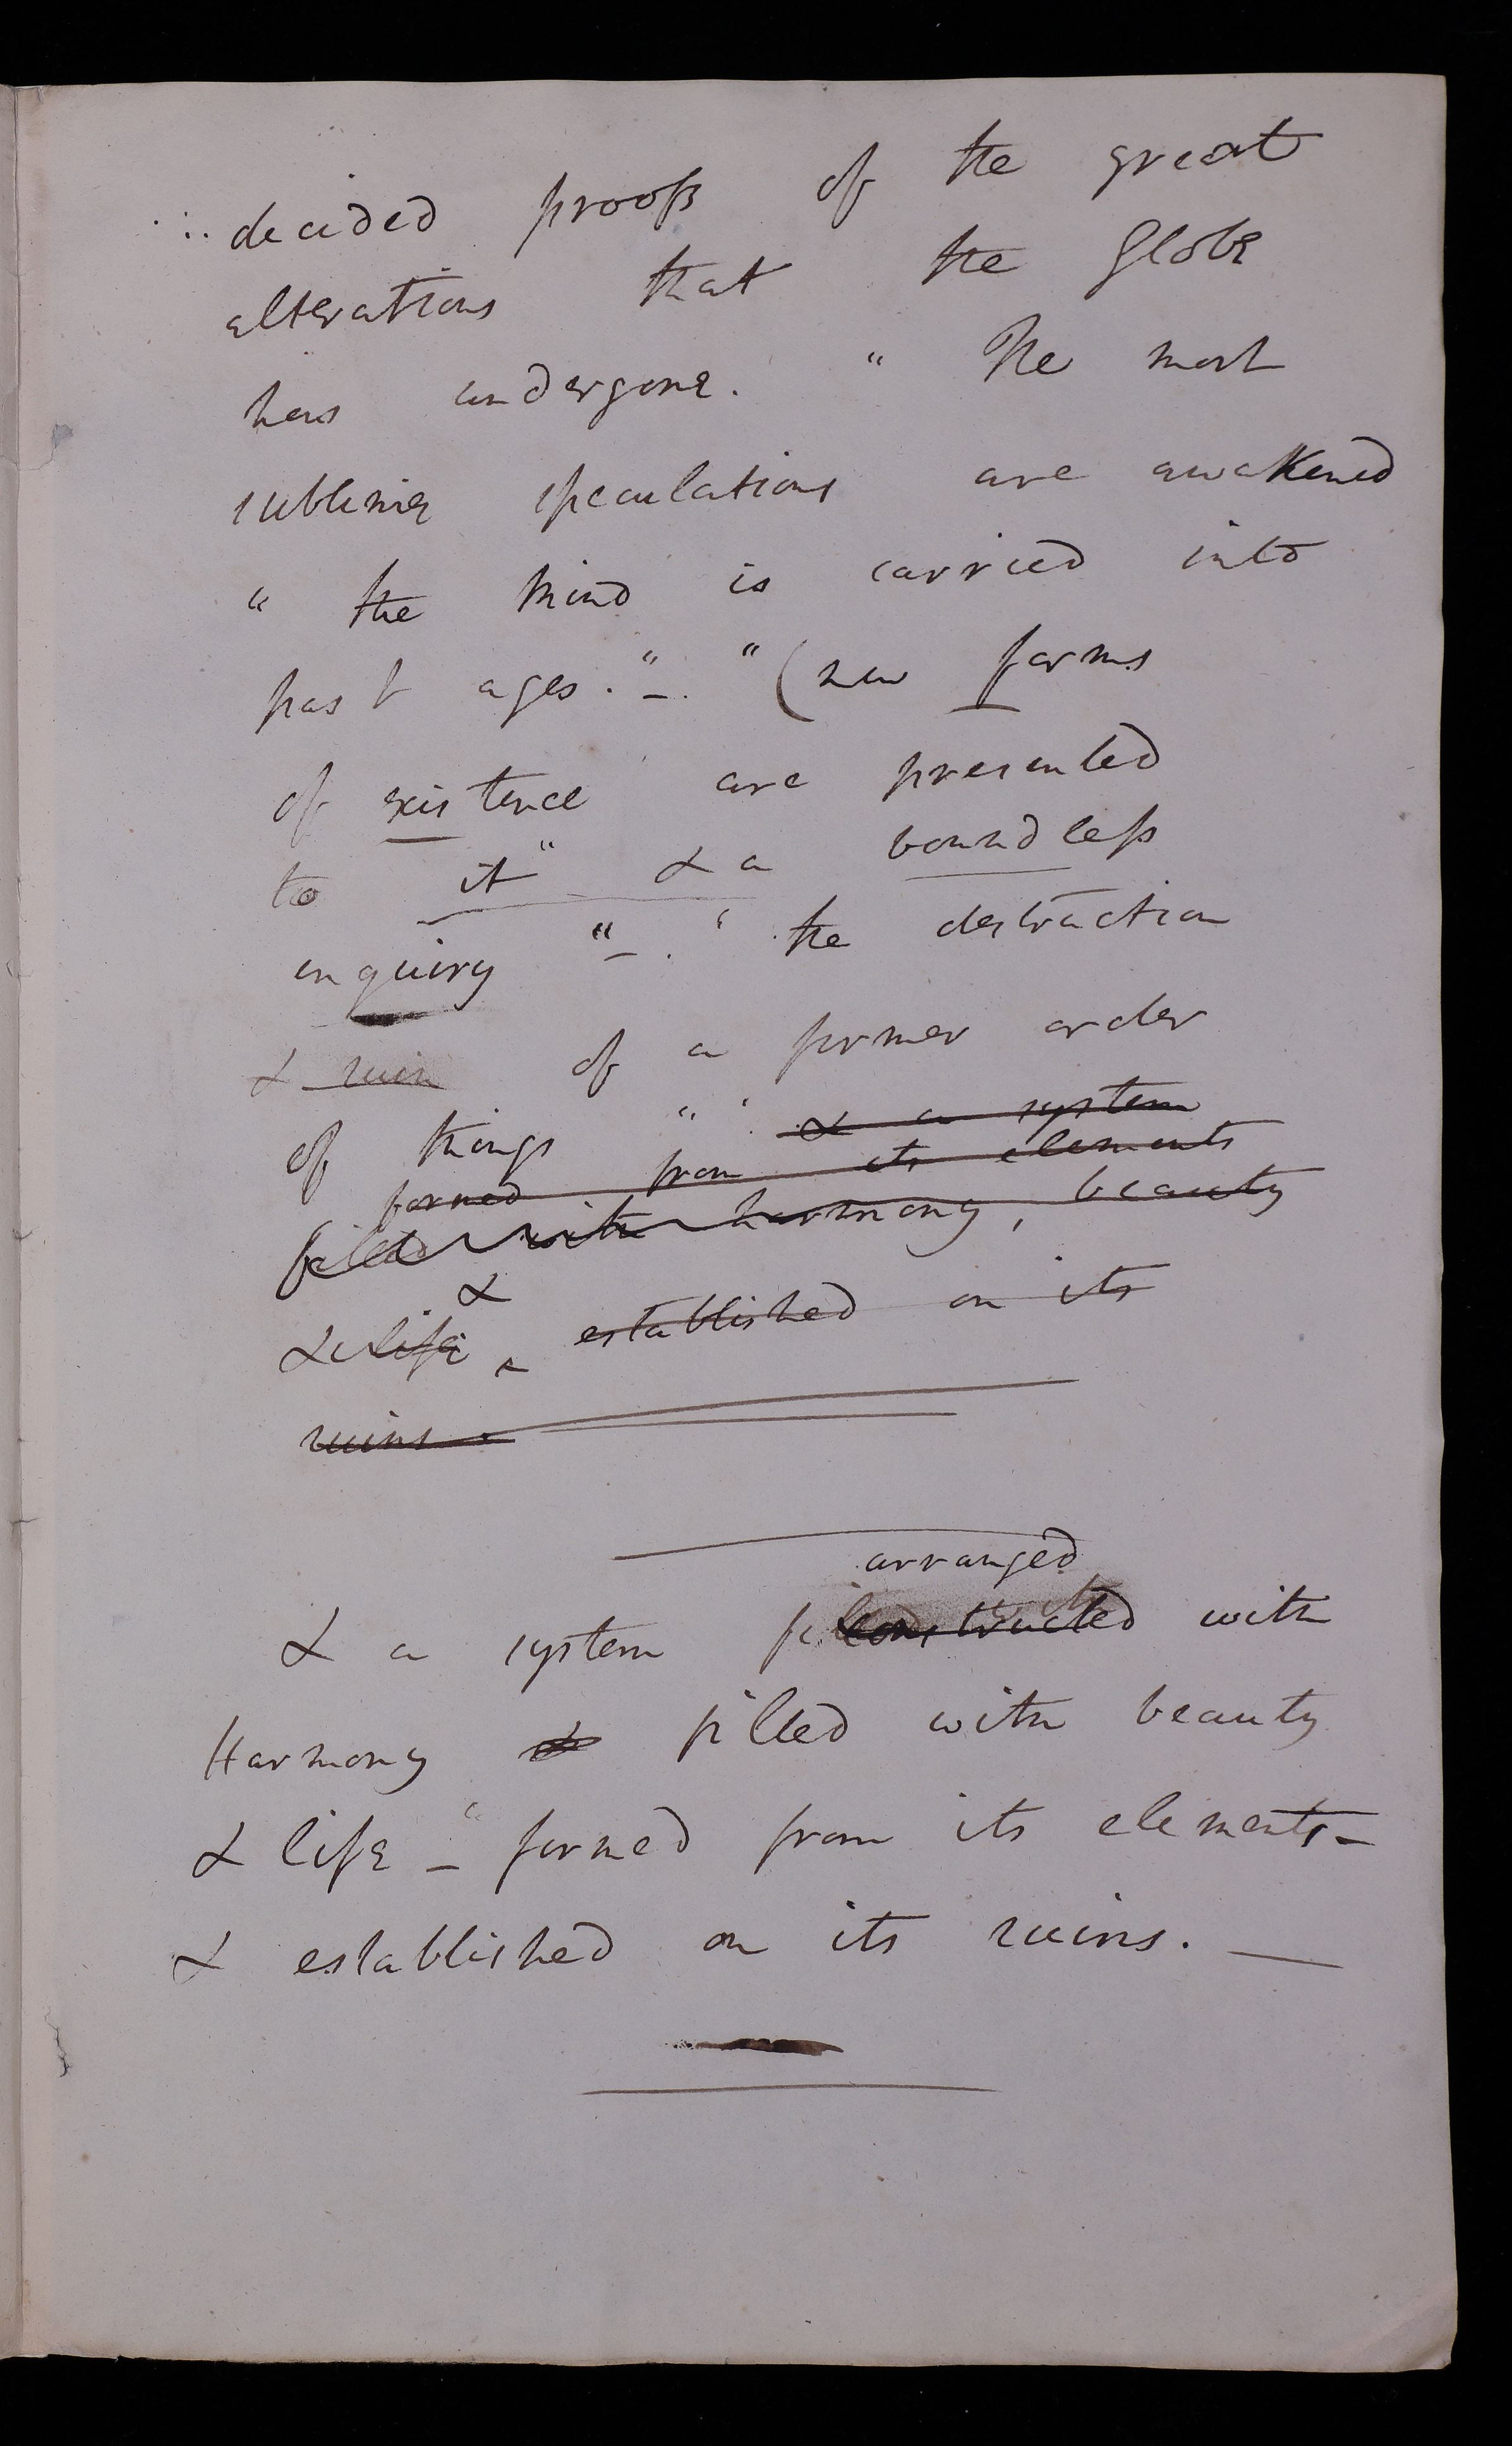 decided proofs of the great
alterations that the Globe
has undergone. " The most
sublime speculations are awakened
" the Mind is carried into
past ages. "_. " (new forms
of existence are presented
to it " & a boundless
enquiry "_. " the destruction
& ruin of a former order
of things " " & a system
formed from its elements
filled with harmony, beauty
&
& life ^ established on its
ruins -
arranged
& a system constructed with
Harmony & filled with beauty
& life _ " formed from its elements _
& established on its ruins. _